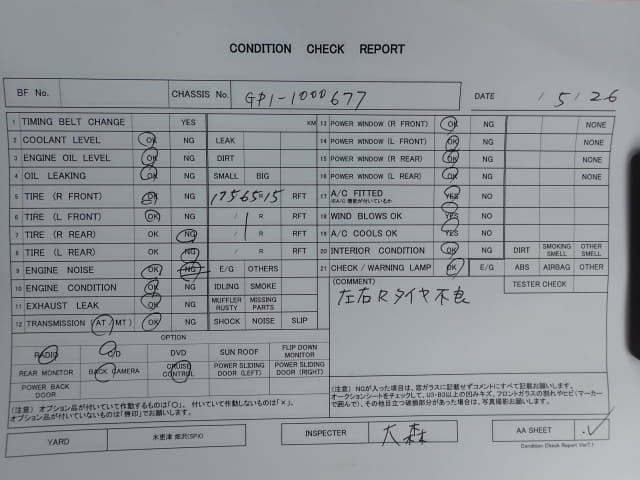 CONDITION CHECK REPORT
BF No. CHASSIS No. GP1-1000677 DATE / 5/26
1 TIMING BELT CHANGE YES KM 13 POWER WINDOW (R FRONT) OK NG NONE
2 COOLANT LEVEL OK NG LEAK 14 POWER WINDOW (L FRONT) OK NG NONE
3 ENGINE OIL LEVEL OK NG DIRT 15 POWER WINDOW (R REAR) OK NG NONE
4 OIL LEAKING OK NG SMALL BIG 16 POWER WINDOW (L REAR) OK NG NONE
5 TIRE (R FRONT) OK NG 175 65 R 15 RFT 17 A/C FITTED YES NO
※A/C 機能が付いているか
6 TIRE (L FRONT) OK NG / R RFT 18 WIND BLOWS OK YES NO
7 TIRE (R REAR) OK NG / R RFT 19 A/C COOLS OK YES NO
8 TIRE (L REAR) OK NG / R RFT 20 INTERIOR CONDITION OK NG DIRT SMOKING SMELL OTHER SMELL
9 ENGINE NOISE OK NG E/G OTHERS 21 CHECK / WARNING LAMP OK E/G ABS AIRBAG OTHER
10 ENGINE CONDITION OK NG IDLING SMOKE (COMMENT) TESTER CHECK
11 EXHAUST LEAK OK NG MUFFLER RUSTY MISSING PARTS 左右Rタイヤ不良
12 TRANSMISSION (AT / MT) OK NG SHOCK NOISE SLIP
OPTION
RADIO C/D DVD SUN ROOF FLIP DOWN MONITOR
REAR MONITOR BACK CAMERA CRUISE CONTROL POWER SLIDING DOOR (LEFT) POWER SLIDING DOOR (RIGHT)
POWER BACK DOOR
(注意) オプション品が付いていて作動するものは「○」、付いていて作動しないものは「×」、
オプション品が付いていないものは「無印」でお願いします。
(注意) NGが入った項目は、窓ガラスに記載せずコメントにすべて記載お願いします。
オークションシートをチェックして、U3・B3以上の凹みキズ、フロントガラスの割れやヒビ(マーカー
で囲んで)、その他目立つ破損部分があった場合は、写真撮影お願いします。
YARD 木更津 畑沢(SPK) INSPECTER 大森 AA SHEET ✓
Condition Check Report Ver7.1